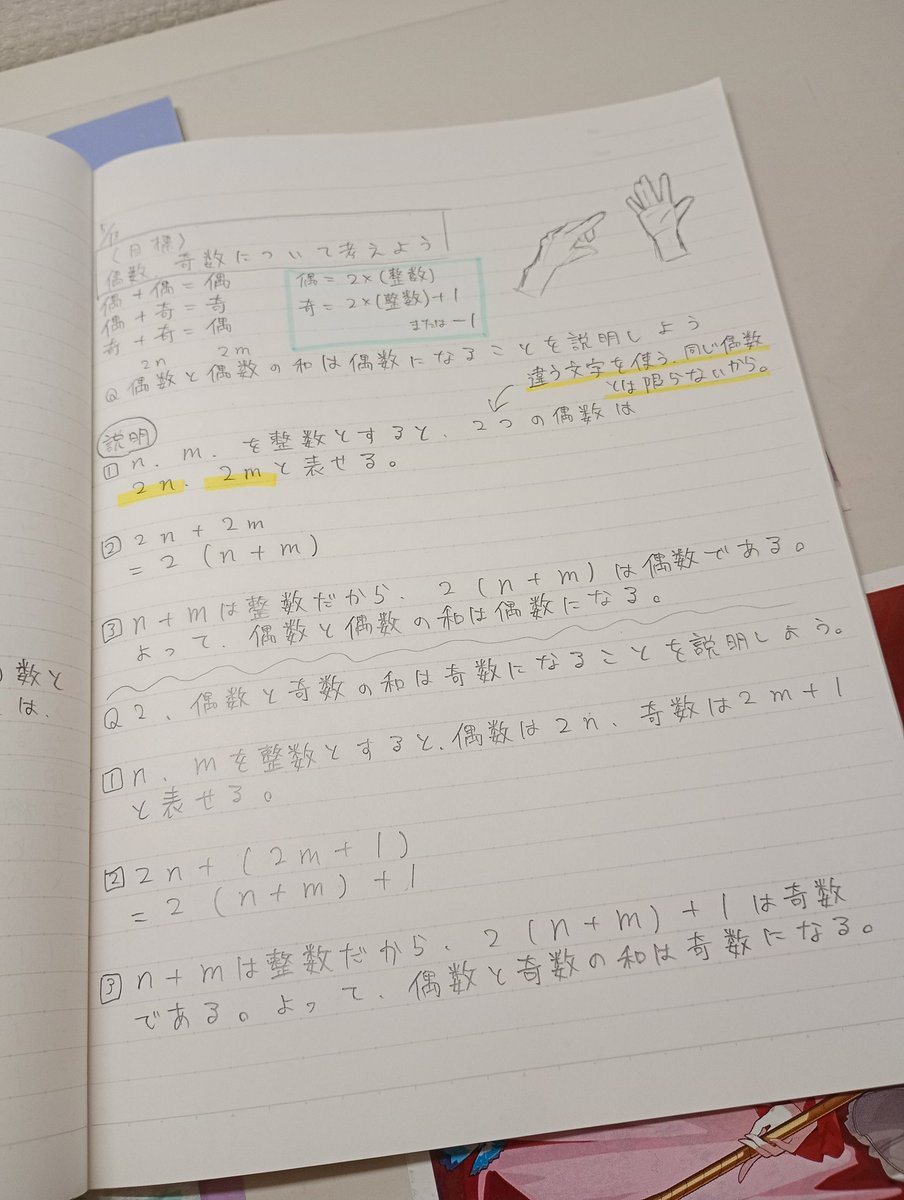 〈目標〉
偶数、奇数について考えよう
偶+偶=偶
偶+奇=奇
奇+奇=偶
偶=2×(整数)
奇=2×(整数)+1
または-1
2n 2m
Q 偶数と偶数の和は偶数になることを説明しよう
違う文字を使う、同じ偶数
とは限らないから。
説明
① n、m、を整数とすると、2つの偶数は
2n、2mと表せる。
② 2n+2m
=2(n+m)
③ n+mは整数だから、2(n+m)は偶数である。
よって、偶数と偶数の和は偶数になる。
Q2、偶数と奇数の和は奇数になることを説明しよう。
① n、mを整数とすると、偶数は2n、奇数は2m+1
と表せる。
② 2n+(2m+1)
=2(n+m)+1
③ n+mは整数だから、2(n+m)+1は奇数
である。よって、偶数と奇数の和は奇数になる。
数と
は、